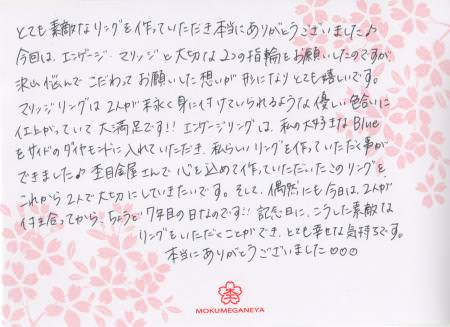 とても素敵なリングを作っていただき本当にありがとうございました♪
今回は、エンゲージ・マリッジと大切な2つの指輪をお願いしたのですが、
沢山悩んで こだわって お願いした想いが 形になり とても嬉しいです。
マリッジリングは 2人が末永く身に付けていられるような優しい色合いに
仕上がっていて 大満足です!! エンゲージリングは、私の大好きな Blue
をサイドのダイヤモンドに入れていただき、私らしいリングを作っていただく事が
できました♪ 杢目金屋さんで 心を込めて作っていただいたこのリングを、
これから 2人で大切にしていきたいです。そして、偶然にも今日は、2人が
付き合ってから、ちょうど 7年目の日なのです!! 記念日に、こうした素敵な
リングをいただくことができ、とても幸せな気持ちです。
本当にありがとうございました♡♡♡
MOKUMEGANEYA